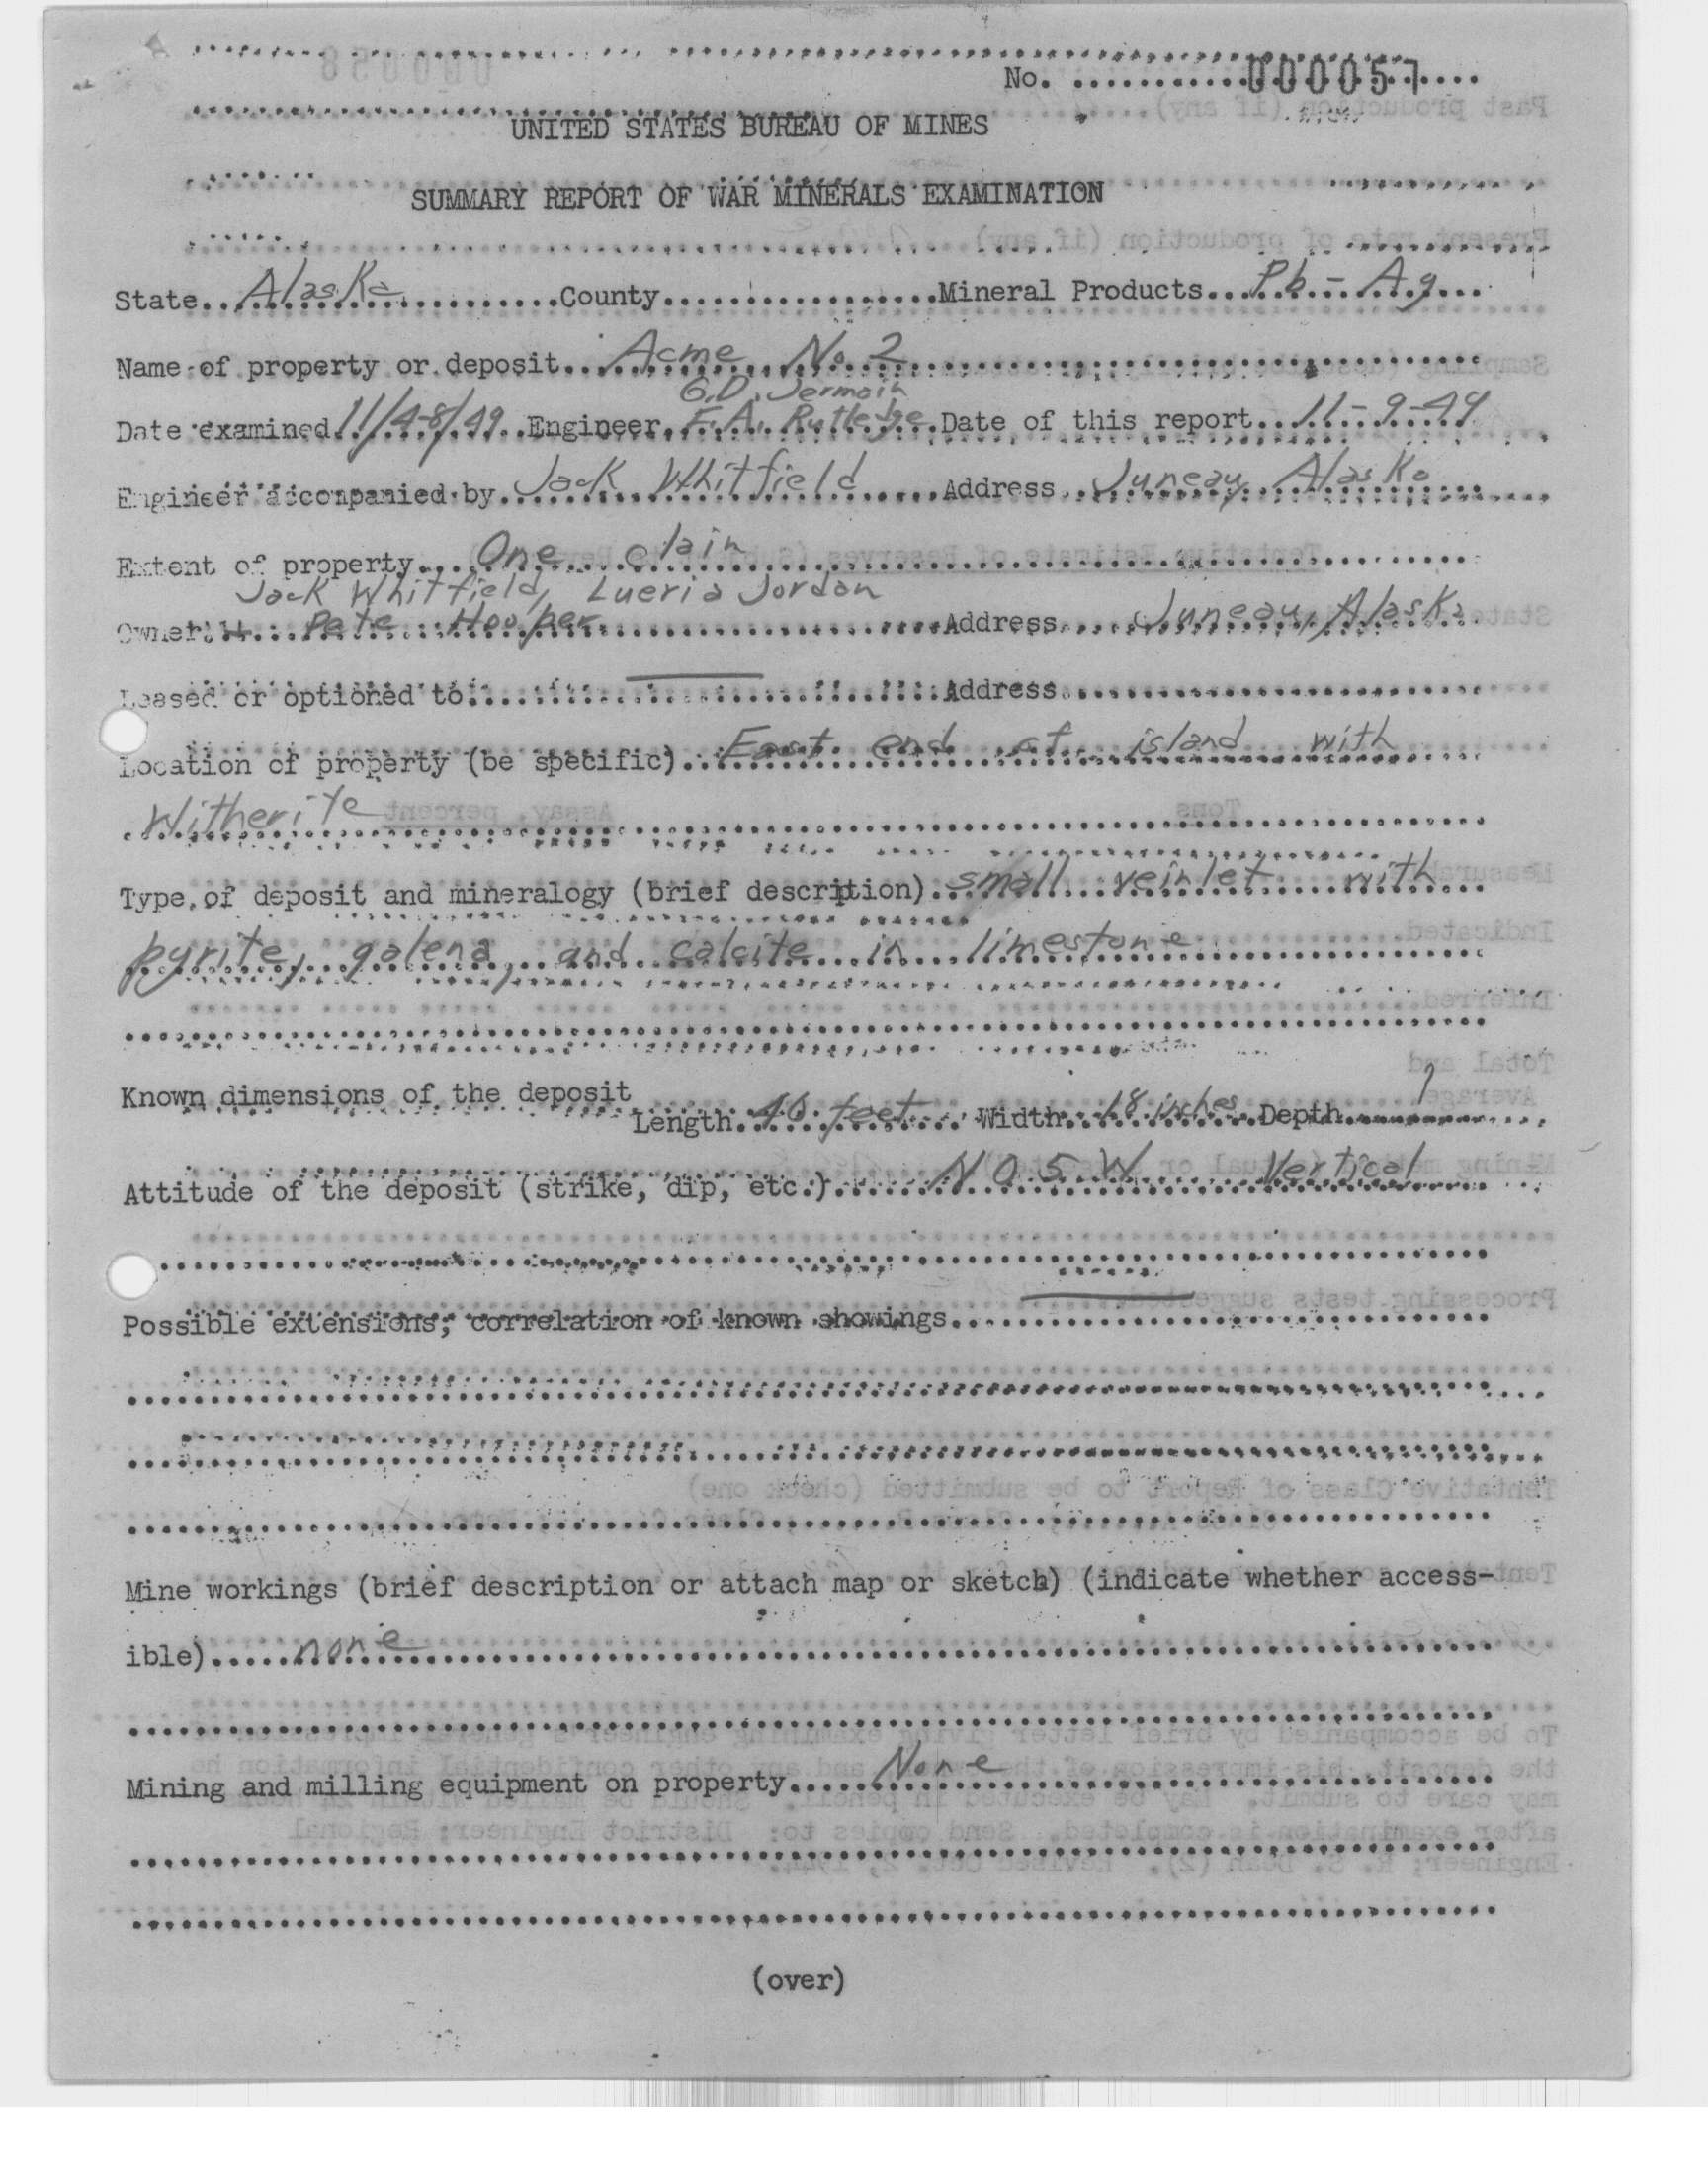 No. ............000057....
UNITED STATES BUREAU OF MINES
SUMMARY REPORT OF WAR MINERALS EXAMINATION
State...Alaska...County...Mineral Products...Pb-Ag...
Name of property or deposit...Acme No. 2...
G.D. Jermain
Date examined 11/4-8/49 Engineer F.A. Rutledge Date of this report 11-9-49
Engineer accompanied by Jack Whitfield Address Juneau, Alaska
Extent of property One claim
Jack Whitfield, Lueria Jordan
Owner Pete Hooper Address Juneau, Alaska
Leased or optioned to Address
Location of property (be specific) East end of island with
Witherite
Type of deposit and mineralogy (brief description) small veinlet with
pyrite, galena, and calcite in limestone
Known dimensions of the deposit
Length 40 feet Width 18 inches Depth ?
Attitude of the deposit (strike, dip, etc.) N 05 W Vertical
Possible extensions; correlation of known showings
Mine workings (brief description or attach map or sketch) (indicate whether access-
ible) none
Mining and milling equipment on property None
(over)